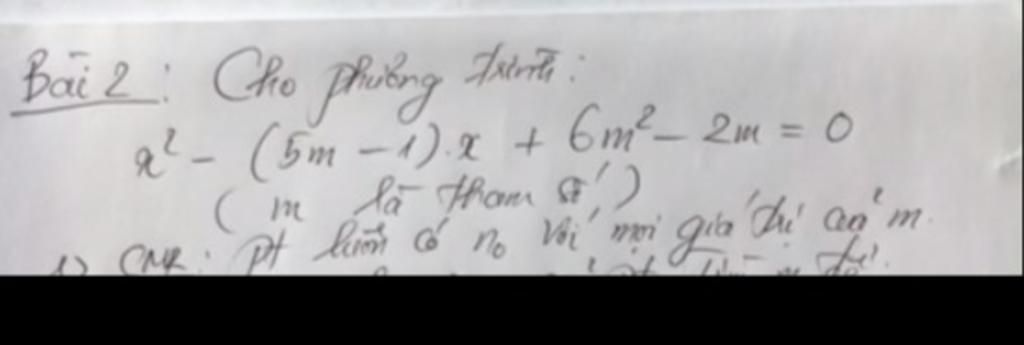 Bài 2 : Cho phương trình :
x² - (5m - 1).x + 6m² - 2m = 0
( m là tham số )
1) CMR : Pt luôn có no với mọi giá trị của m.